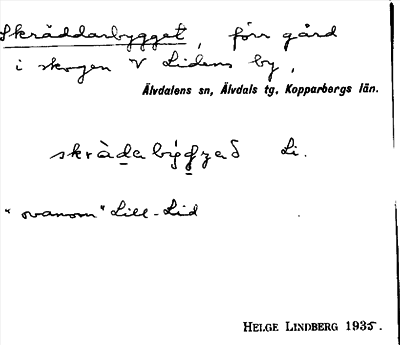 Skräddarbygget, förr gård
i skogen V Lidens by,
Älvdalens sn, Älvdals tg, Kopparbergs län.
skràda býggad Li.
"ovanom" Lill-Lid
HELGE LINDBERG 1935.